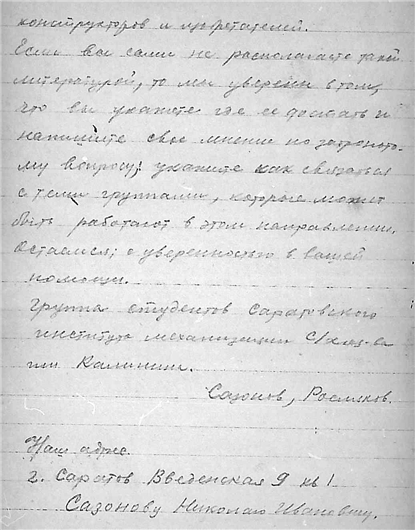 конструкторов и изобретателей.
Если вы сами не располагаете такой
литературой, то мы уверены в том,
что вы укажете где ее достать и
напишите свое мнение по затронуто-
му вопросу; укажите как связаться
с теми группами, которые может
быть работают в этом направлении.
Остаемся; с уверенностью в вашей
помощи.
Группа студентов Саратовского
института механизации с/хоз-ва
им Калинина.
Сазонов, Росляков.
Наш адрес.
г. Саратов Введенская 9 кв 1
Сазонову Николаю Ивановичу.